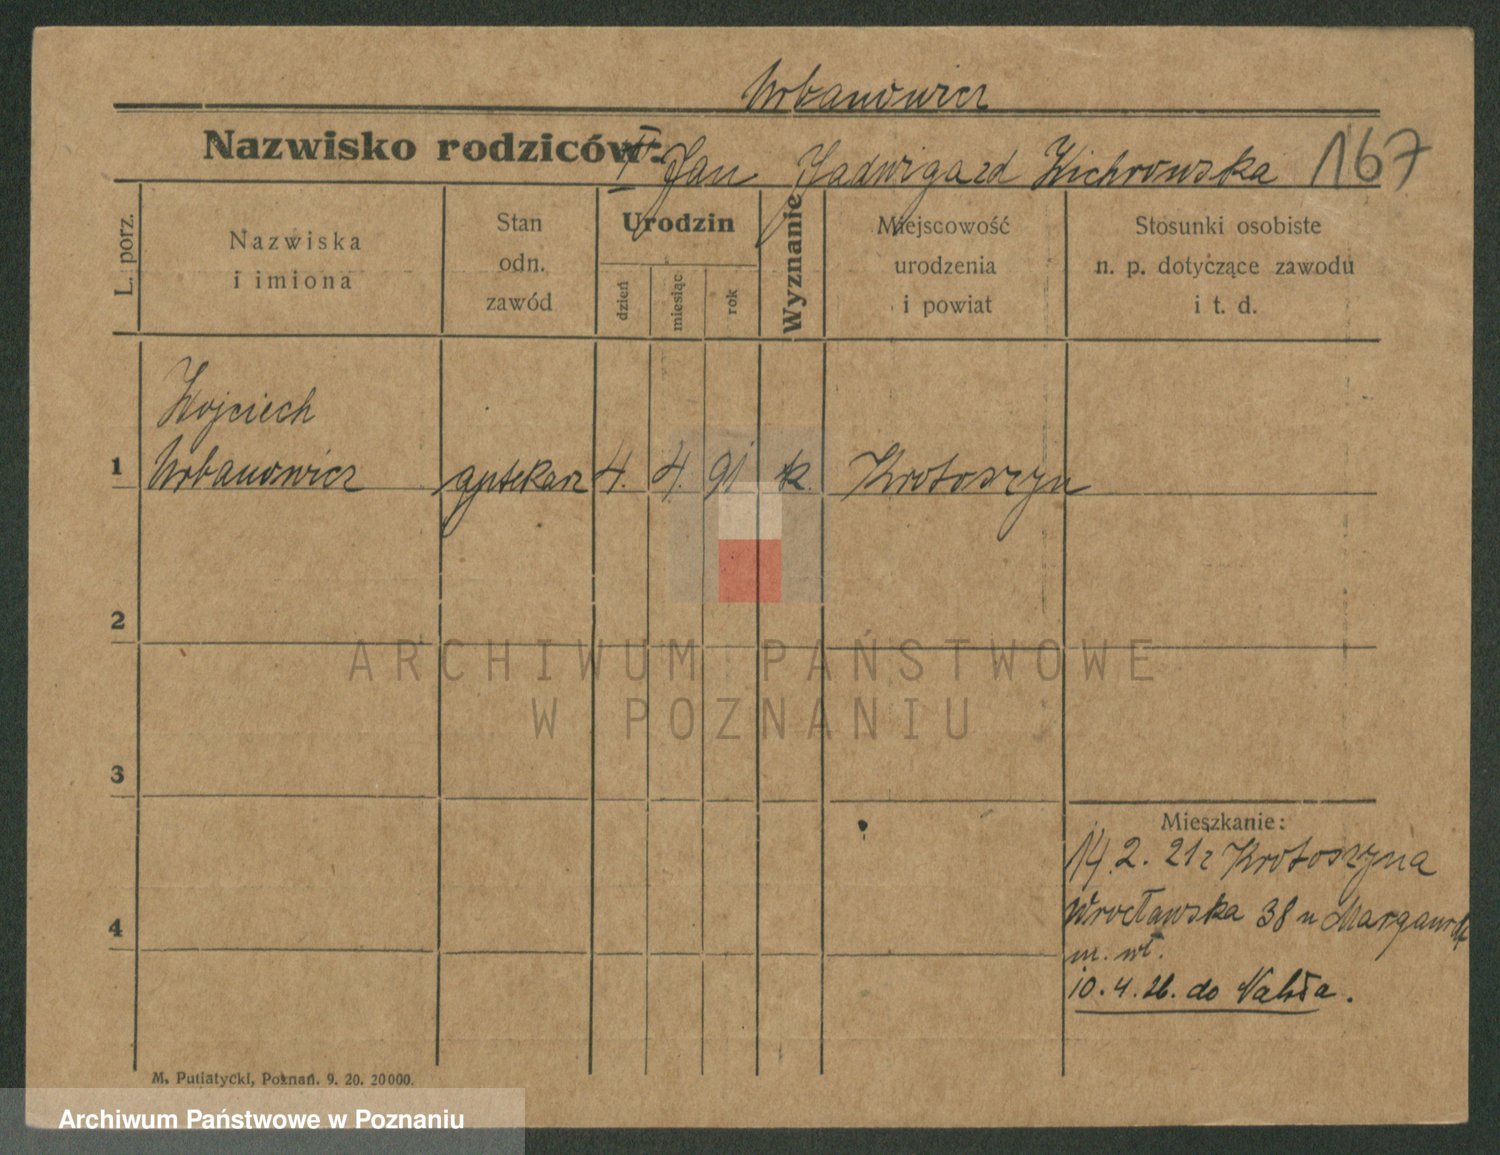 Urbanowicz
Nazwisko rodziców: Jan Jadwiga zd Wichrowska 167
L. porz.
Nazwiska
i imiona
Stan
odn.
zawód
Urodzin
dzień
miesiąc
rok
Wyznanie
Miejscowość
urodzenia
i powiat
Stosunki osobiste
n. p. dotyczące zawodu
i t. d.
Wojciech
1 Urbanowicz aptekarz 4. 4. 91 k. Krotoszyn
2
3
4
Mieszkanie:
14.2.21 z Krotoszyna
Wrocławska 38 u
m. wł.
10.4.26. do
M. Putiatycki, Poznań. 9. 20. 20000.
ARCHIWUM PAŃSTWOWE
W POZNANIU
Archiwum Państwowe w Poznaniu